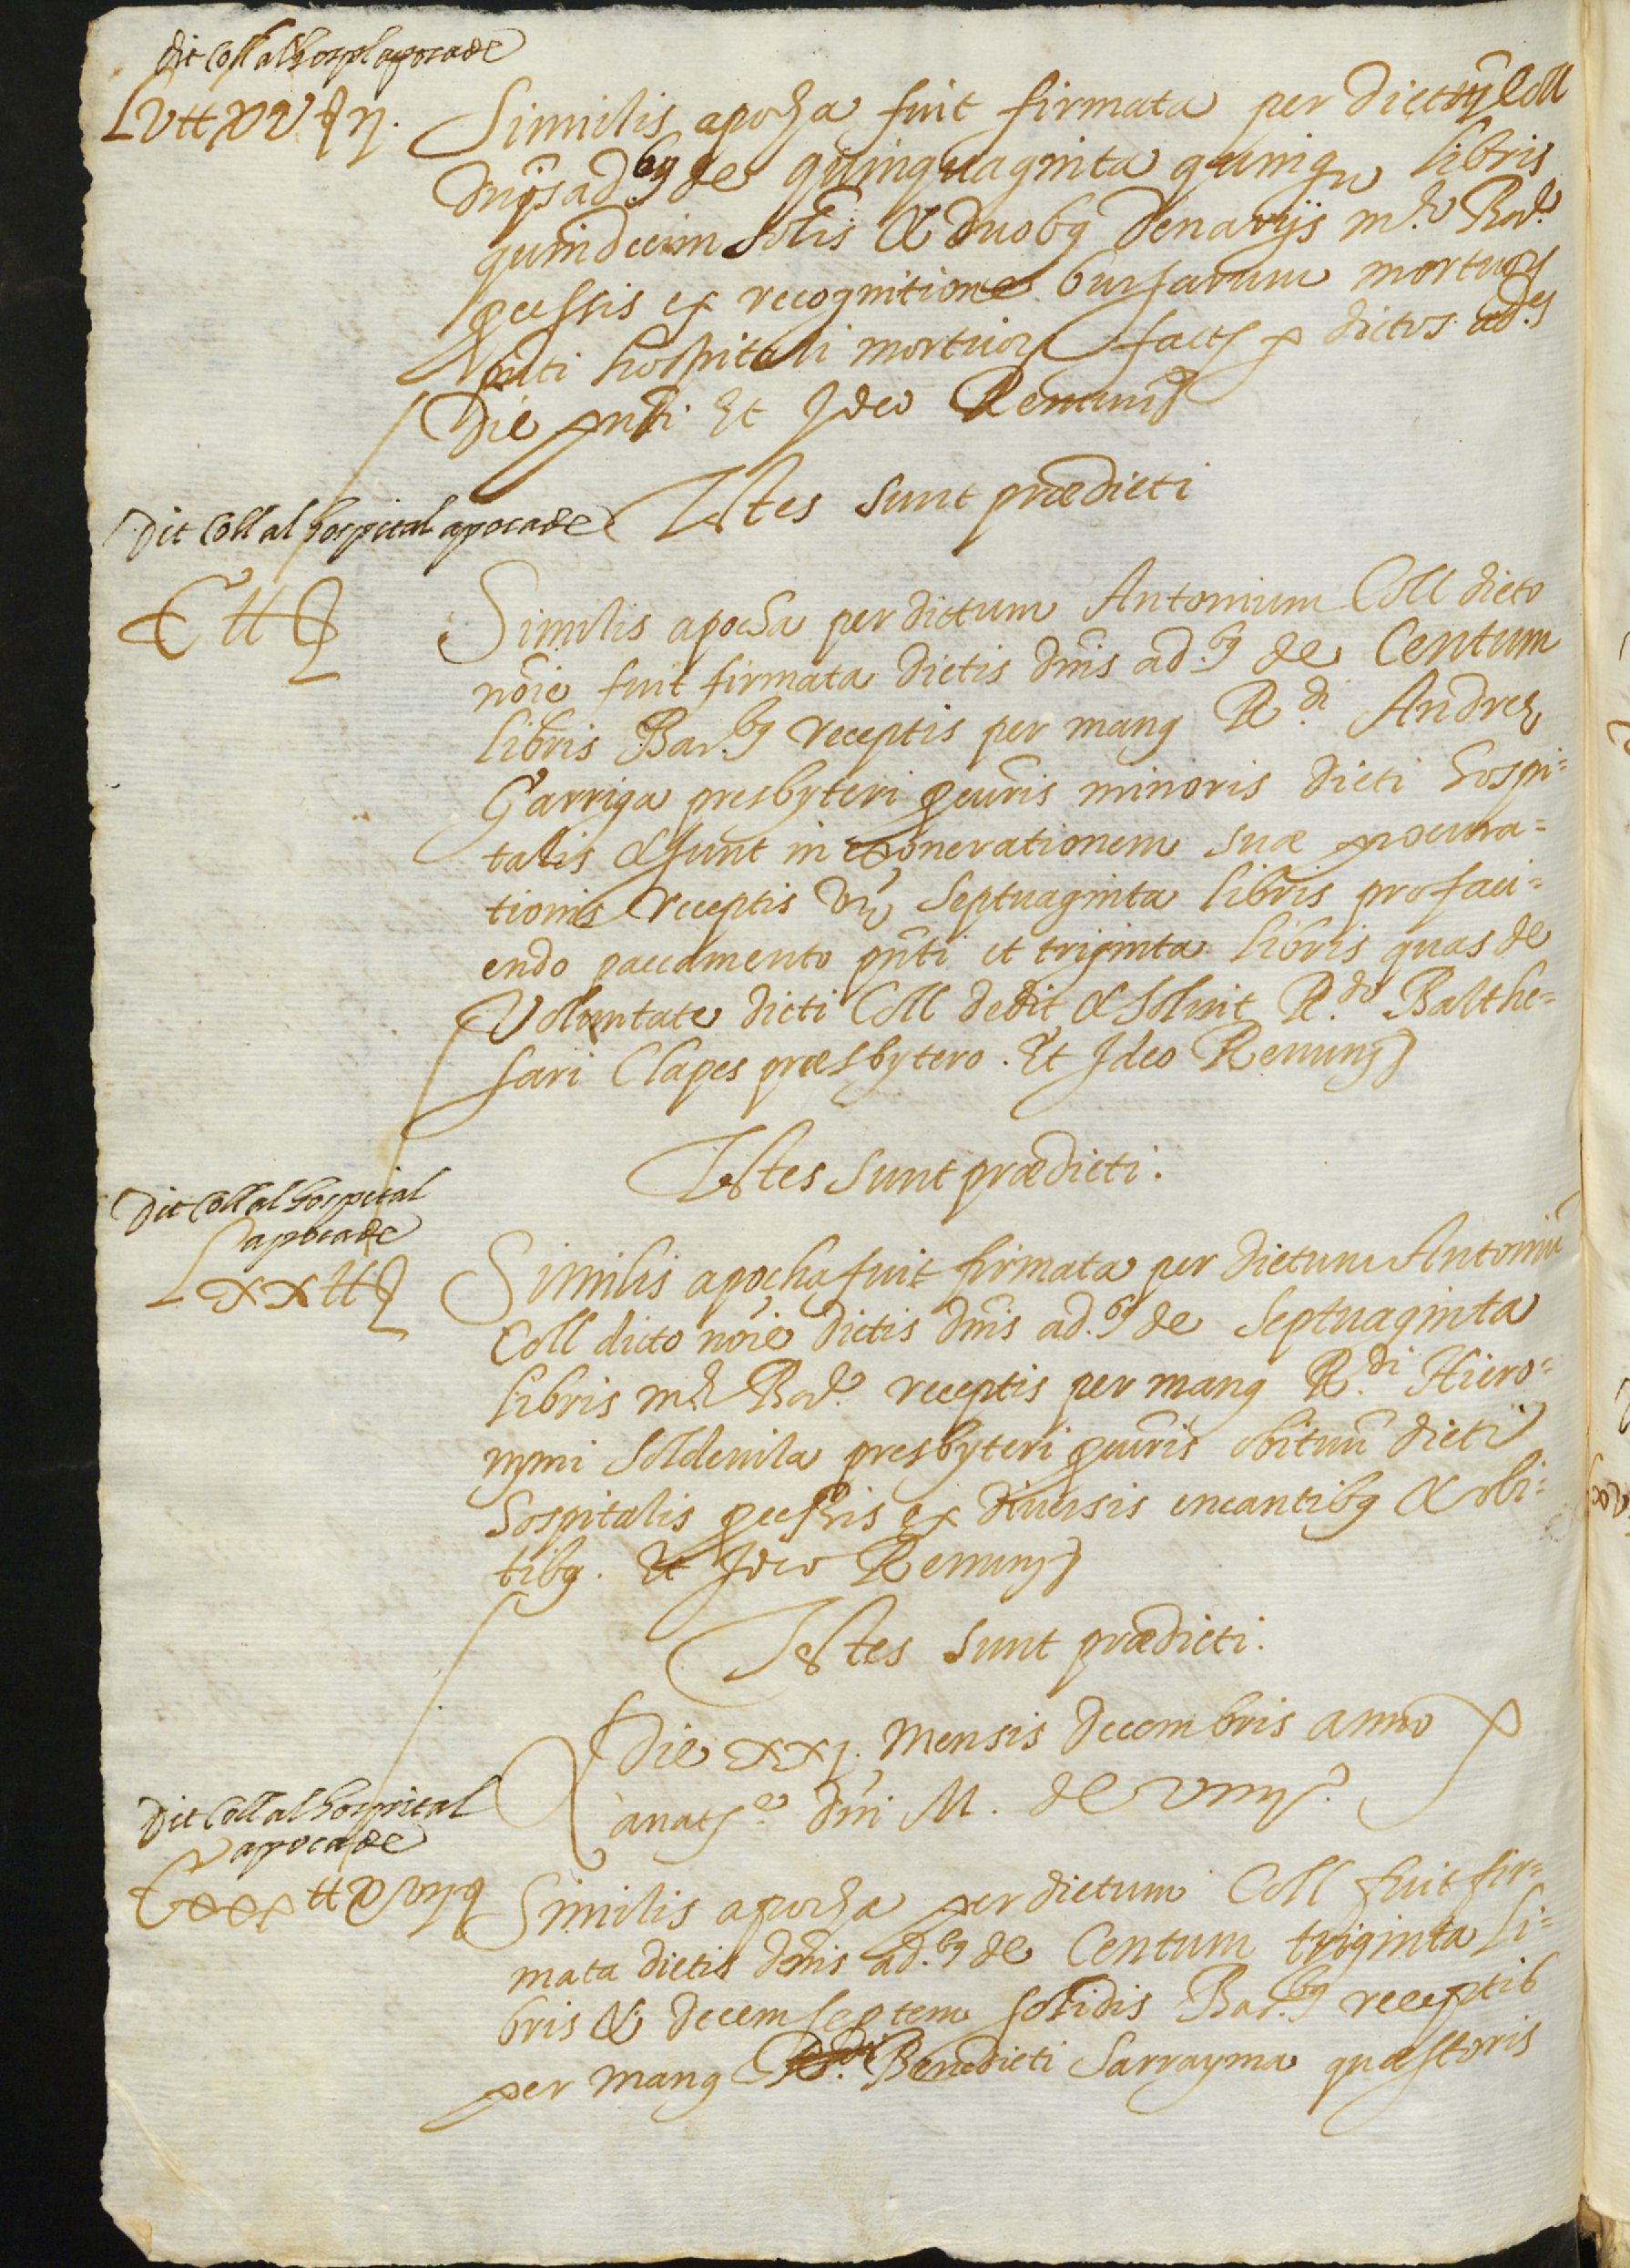 Dit Coll al hospl apoca de
LV tt XV ſ ij.
Similis apocha fuit firmata per dictũ Coll
dnĩs ad.bꝰ de quinquaginta quinqꝫ libris
quindecim solĩs & duobꝰ denarijs mᵉ Barᵉ
ꝓcessis ex recognitione bursarum mortuoꝝ
pñti hospitali mortuoꝝ factꝭ ꝑ dictos ad.es
die pñti. Et Ideo Renunꝭ
Testes sunt prædicti
Dit Coll al hospital apoca de
C tt ſ
Similis apocha per dictum Antonium Coll dicto
nõie fuit firmata dictis dñis ad.bꝰ de Centum
libris Bar.bꝰ receptis per manꝰ R.di Andreę
Garriga presbyteri ꝓcurĩs minoris dicti hospi=
talis & sunt in exonerationem suæ procura=
tionis receptis vꝫ Septuaginta libris pro faci=
endo paccamento pñti et triginta libris quas de
Voluntate dicti Coll dedit & soluit R.do Balthe=
sari Clapes præsbytero. Et Ideo Renunꝭ
Testes sunt prædicti.
Dit Coll al hospital
apoca de
LXX tt ſ
Similis apocha fuit firmata per dictum Antoniũ
Coll dicto nõie dictis dñis ad.bꝰ de Septuaginta
libris mᵉ Barᵉ receptis per manꝰ R.di Hiero=
nymi Soldeuila presbyteri ꝓcurĩs obituũ dicti
hospitalis ꝓcessis ex diuersis encantibꝰ & obi=
tibꝰ. Et Ideo Renunꝭ
Testes sunt prædicti.
Die xxj. Mensis Decembris anno
a natꝭᵉ dñi M. D
Dit Coll al hospital
apoca de
Cxxx tt xvij ſ
Similis apocha per dictum Coll fuit fir=
mata dictis dñis ad.bꝰ de Centum triginta li=
bris & decem septem solidis Bar.bꝰ receptis
per manꝰ Benedicti Sarrayma quæstoris